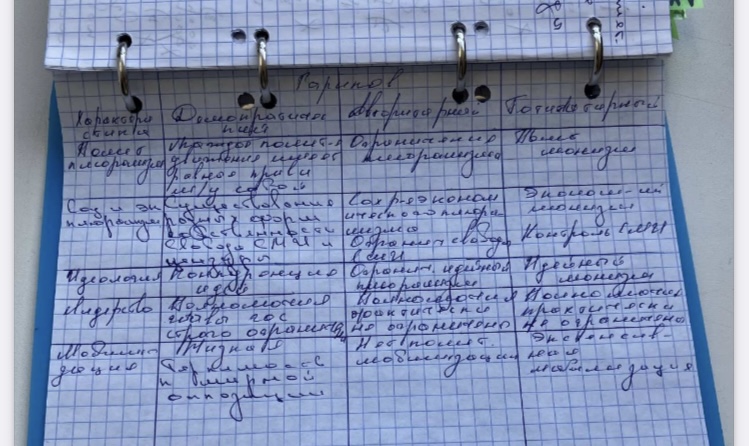 Гарипов
Характеристика
Демократический
Авторитарный
Тоталитарный
Полит плюрализм
Каждое полит-е
движение имеет
равные права
м/у собой
Ограничение
плюрализма
Полит
монизм
Соц и эк
плюрализм
Существование
разных форм
собственности
Свобода СМИ и
цензуры
Сохр-е эконом
ического плюра
лизма
Огранич свободы
СМИ
Эконом-ий
монизм
Контроль СМИ
Идеология
Конкуренция
идей
Огранич. идейный
плюрализм
Идейный
монизм
Лидерство
Полномочия
главы гос
строго огранич
Полномочия
фактически
не ограничено
Полномочия
практически
не ограничено
Мобили
зация
Низкая
к мирной
оппозиции
Нет полит.
мобилизации
Экстенсив-
ная
мобилизация